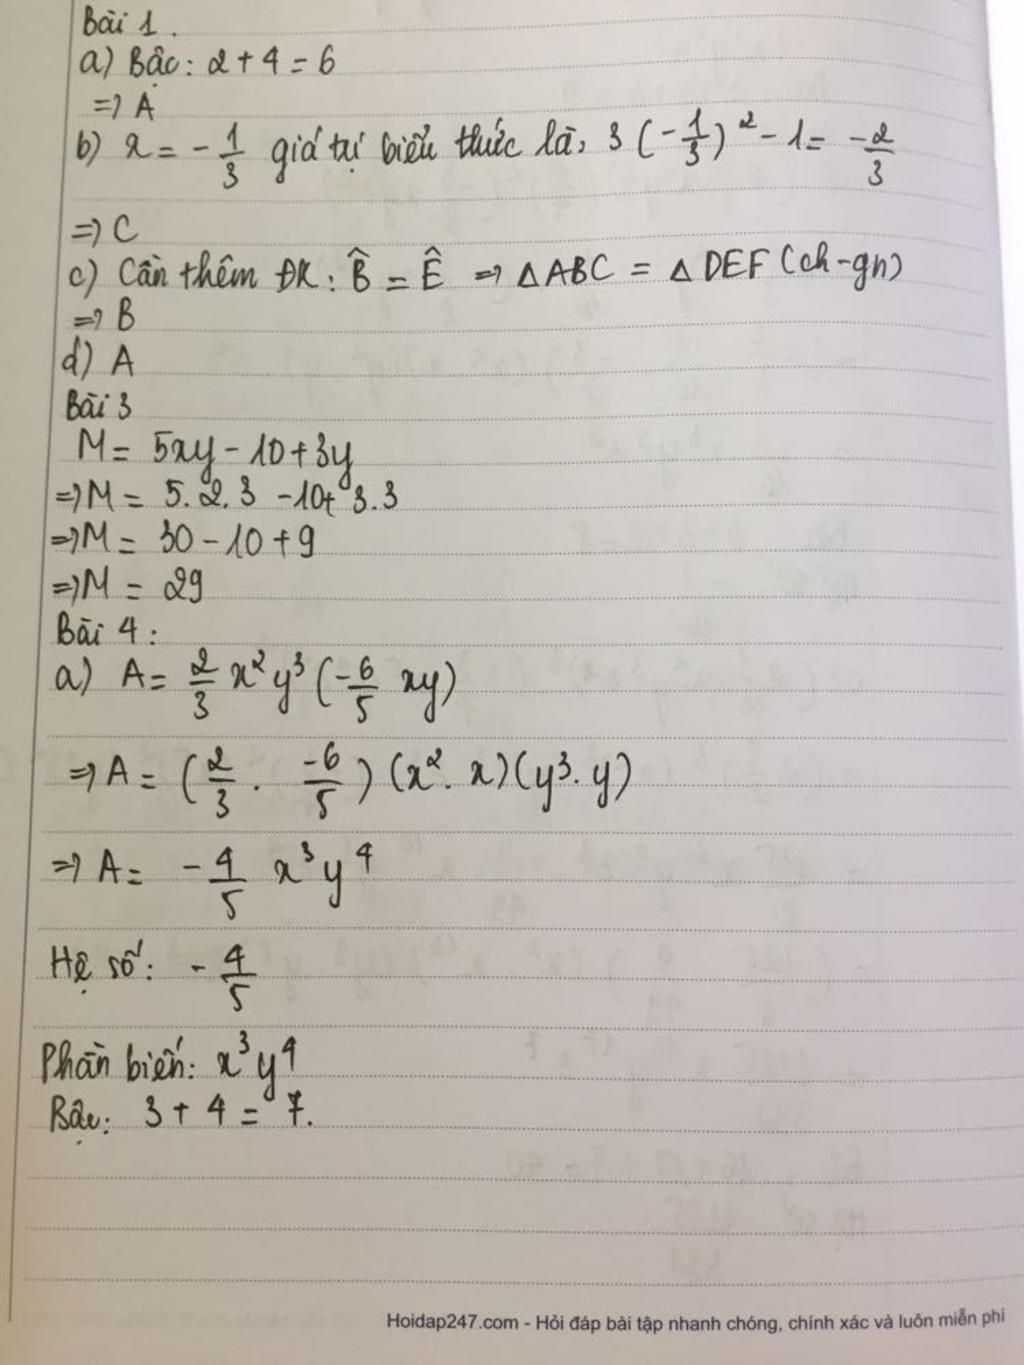 Bài 1.
a) Bậc: 2 + 4 = 6
=> A
b) x = -1/3 giá trị biểu thức là, 3 (-1/3)² - 1 = -2/3
=> C
c) Cần thêm ĐK: B̂ = Ê => △ABC = △DEF (ch-gn)
=> B
d) A
Bài 3
M = 5xy - 10 + 3y
=> M = 5.2.3 - 10 + 3.3
=> M = 30 - 10 + 9
=> M = 29
Bài 4:
a) A = 2/3 x²y³ (-6/5 xy)
=> A = (2/3 . -6/5) (x². x)(y³. y)
=> A = -4/5 x³y⁴
Hệ số: -4/5
Phần biến: x³y⁴
Bậc: 3 + 4 = 7.
Hoidap247.com - Hỏi đáp bài tập nhanh chóng, chính xác và luôn miễn phí